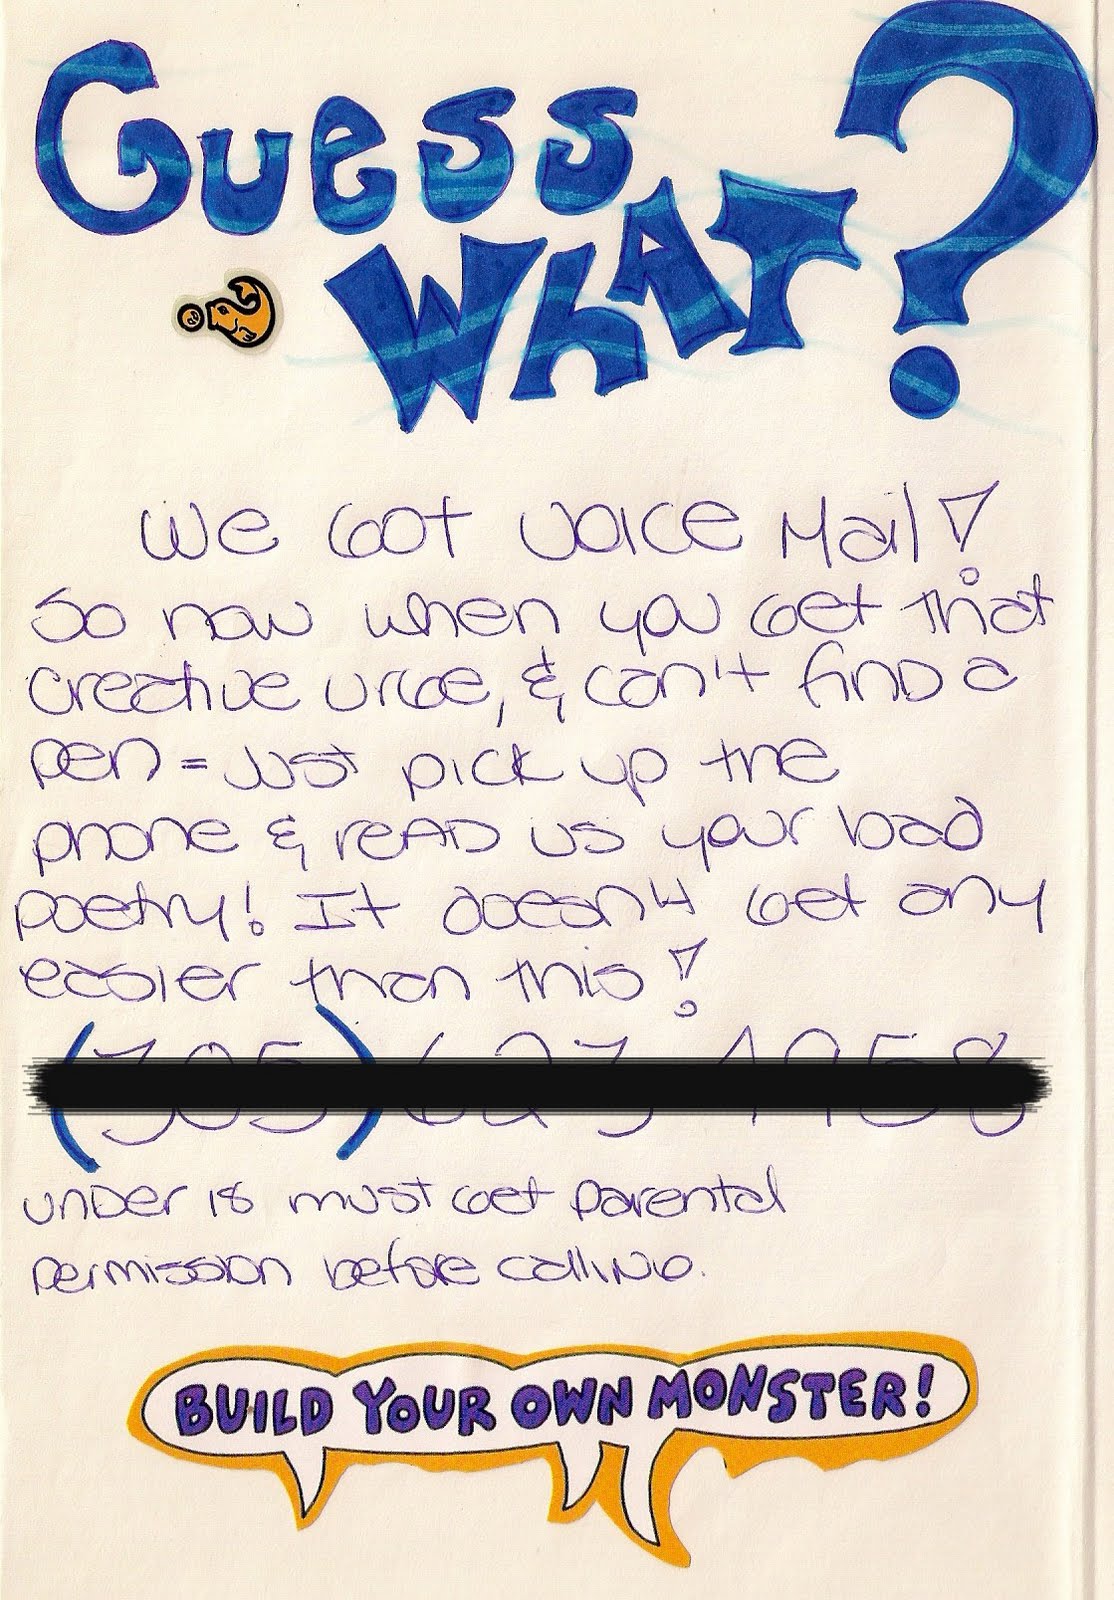 Guess
What?
We Got Voice Mail!
So now when you Get that
creative urge, & can't find a
pen = Just pick up the
phone & read us your bad
poetry! It doesn't Get any
easier than this!
under 18 must Get parental
permission before calling.
BUILD YOUR OWN MONSTER!